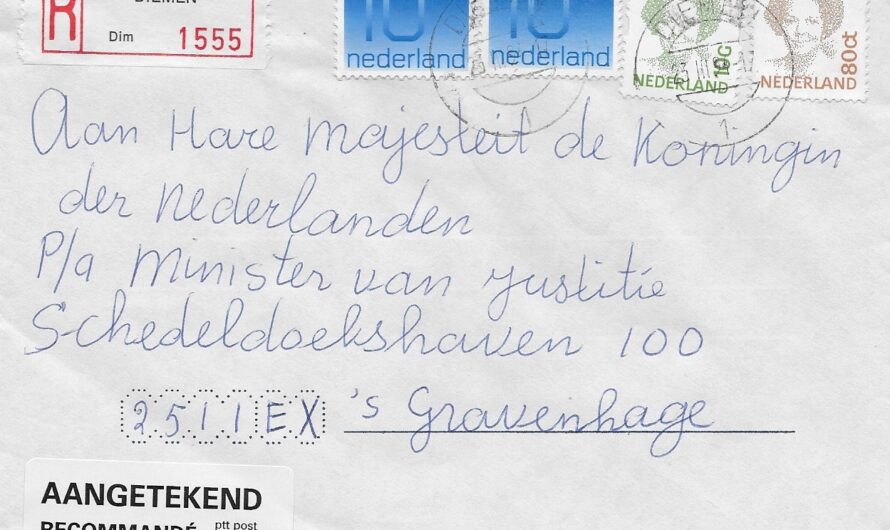 R
DIEMEN
Dim 1555
10 nederland
10 nederland
NEDERLAND
NEDERLAND 80ct
Aan Hare Majesteit de Koningin
der Nederlanden
P/a Minister van Justitie
Schedeldoekshaven 100
2511 EX 's Gravenhage
AANGETEKEND
RECOMMANDÉ ptt post